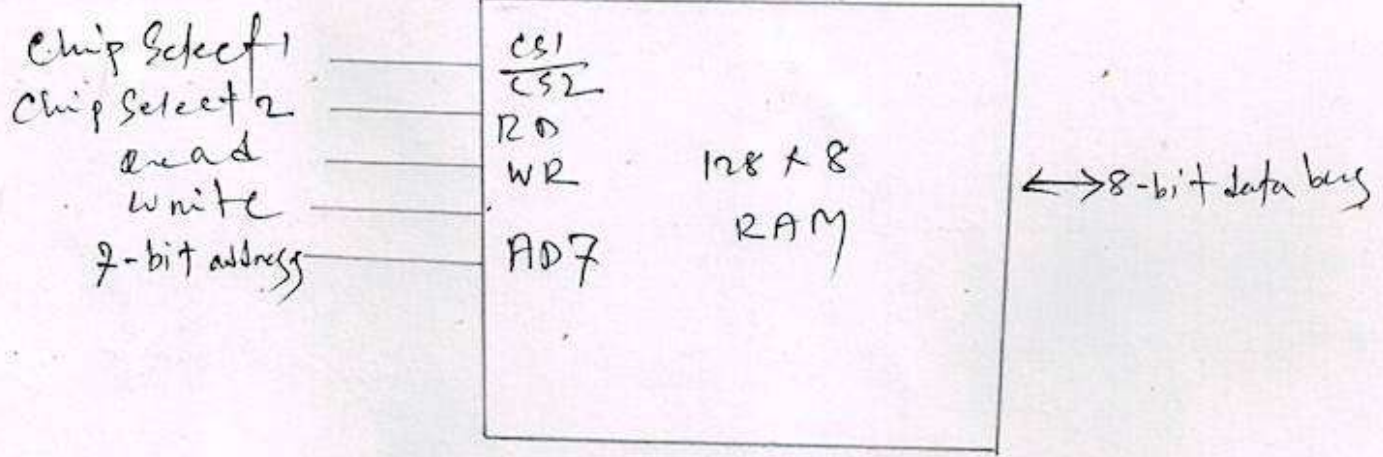 Chip Select 1
Chip Select 2
read
write
7-bit address
CS1
C̅S̅2̅
RD
WR
AD7
128 × 8
RAM
↔ 8-bit data bus